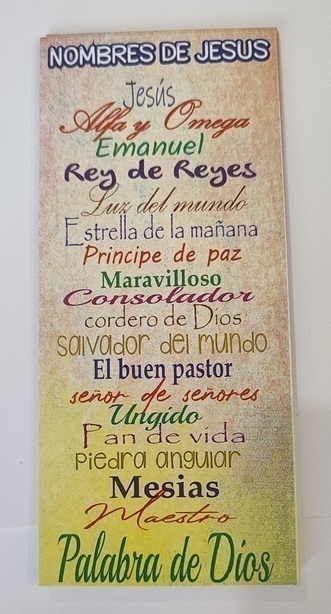 NOMBRES DE JESUS
Jesús
Alfa y Omega
Emanuel
Rey de Reyes
Luz del mundo
Estrella de la mañana
Principe de paz
Maravilloso
Consolador
cordero de Dios
salvador del mundo
El buen pastor
señor de señores
Ungido
Pan de vida
Piedra angular
Mesias
Maestro
Palabra de Dios